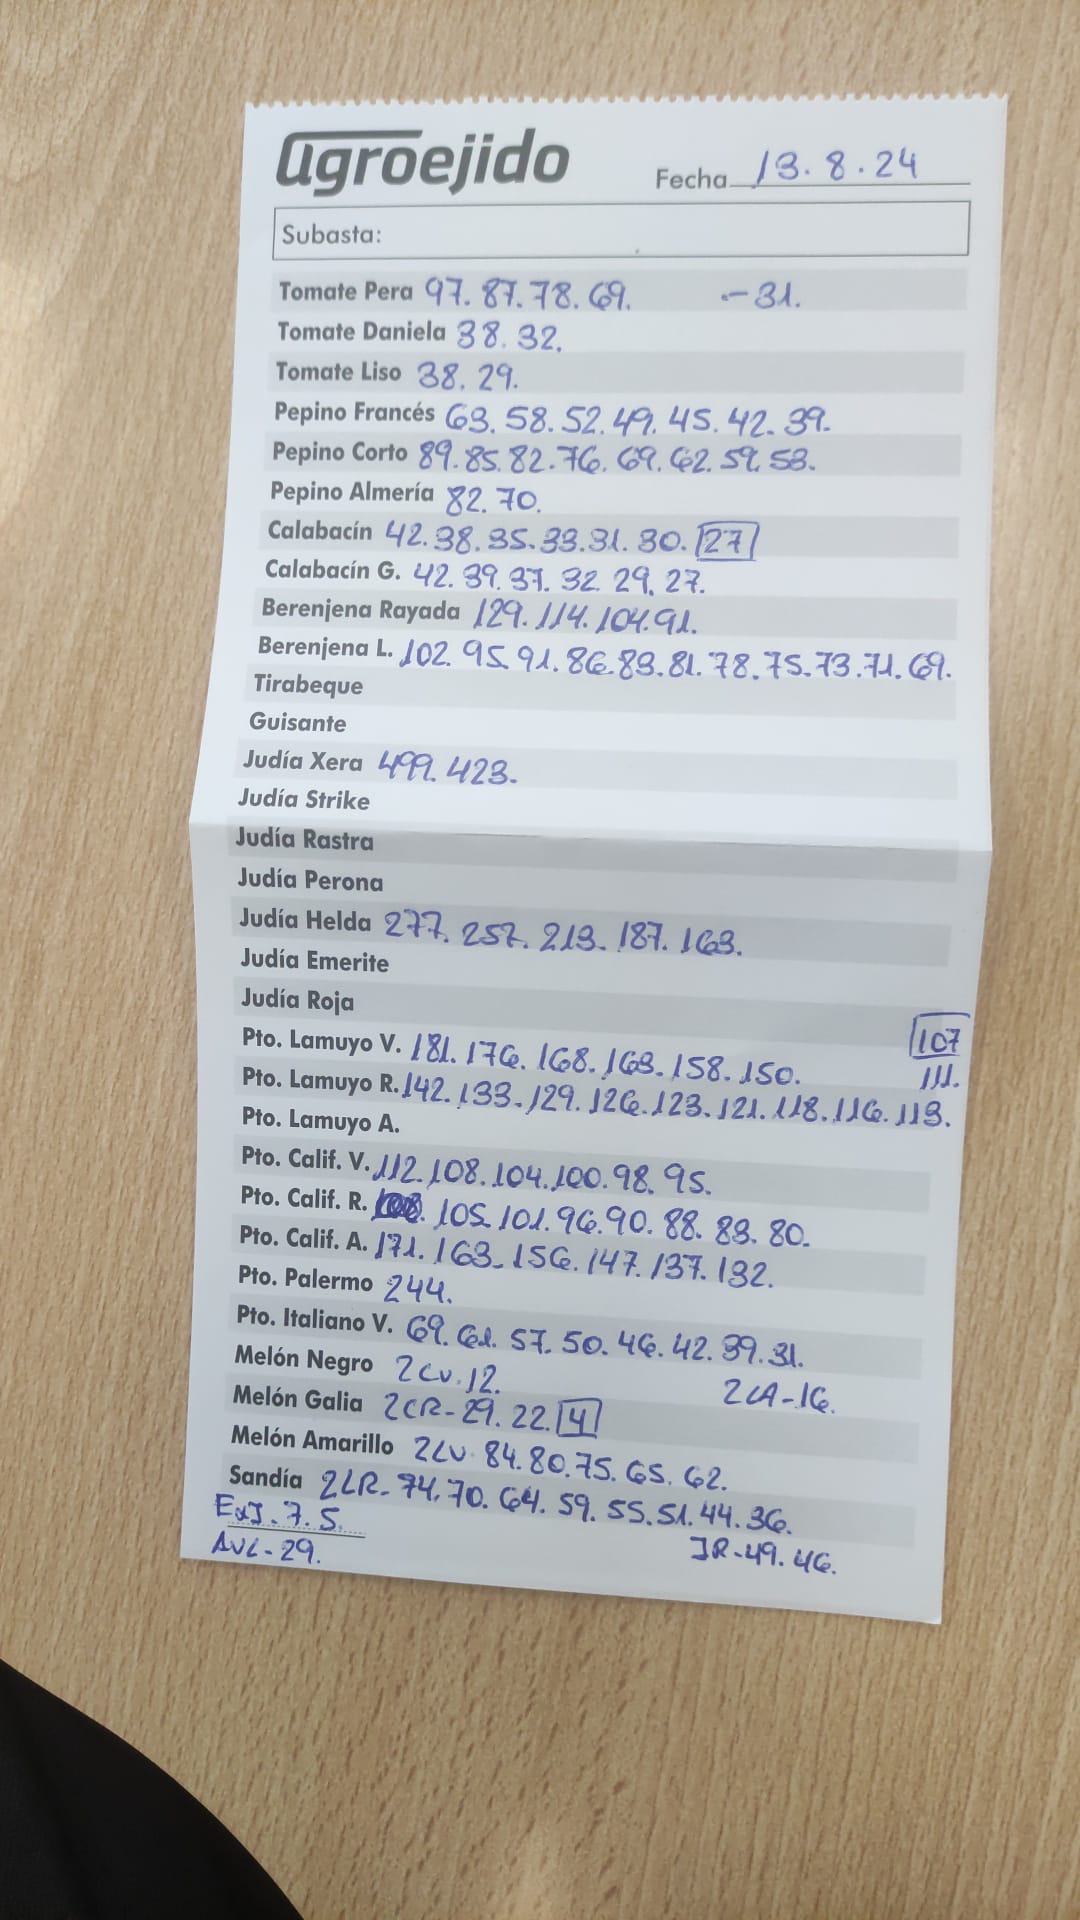 agroejido
Fecha 13.8.24
Subasta:
Tomate Pera 97.87.78.69. -31.
Tomate Daniela 38.32.
Tomate Liso 38.29.
Pepino Francés 63.58.52.49.45.42.39.
Pepino Corto 89.85.82.76.69.62.59.53.
Pepino Almería 82.70.
Calabacín 42.38.35.33.31.30.27
Calabacín G. 42.39.37.32.29.27.
Berenjena Rayada 129.114.104.91.
Berenjena L. 102.95.91.86.83.81.78.75.73.71.69.
Tirabeque
Guisante
Judía Xera 499.423.
Judía Strike
Judía Rastra
Judía Perona
Judía Helda 277.257.213.187.163.
Judía Emerite
Judía Roja
107
Pto. Lamuyo V. 181.176.168.163.158.150.
111.
Pto. Lamuyo R. 142.133.129.126.123.121.118.116.113.
Pto. Lamuyo A.
Pto. Calif. V. 112.108.104.100.98.95.
Pto. Calif. R. 105.101.96.90.88.83.80.
Pto. Calif. A. 171.163.156.147.137.132.
Pto. Palermo 244.
Pto. Italiano V. 69.61.57.50.46.42.39.31.
Melón Negro 2CV.12. 2CA-16.
Melón Galia 2CR-29.22.4
Melón Amarillo 2LV.84.80.75.65.62.
Sandía 2LR-74.70.64.59.55.51.44.36.
ExJ.7.5.
JR-49.46.
AVL-29.